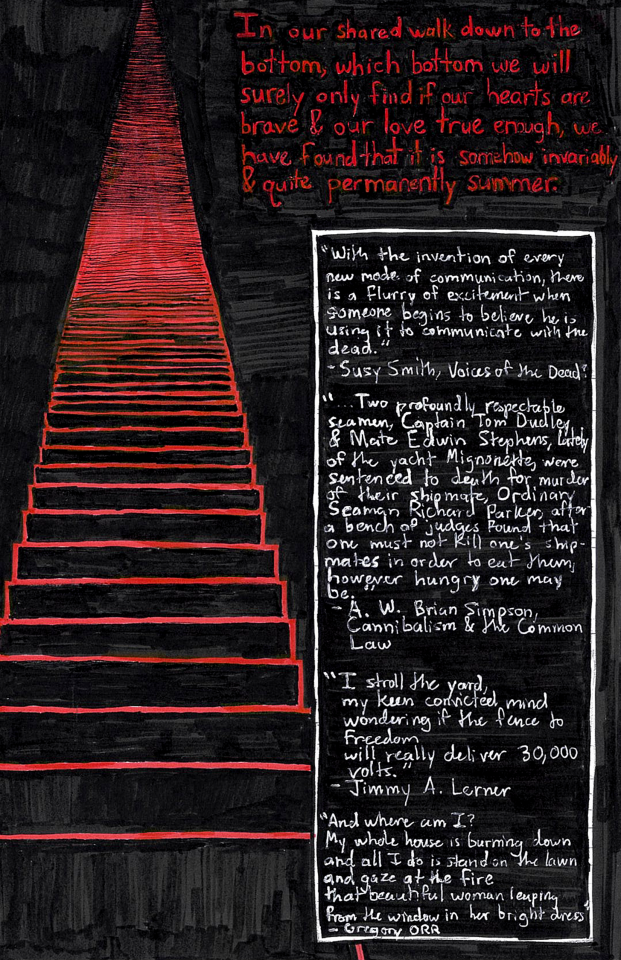 In our shared walk down to the
bottom, which bottom we will
surely only find if our hearts are
brave & our love true enough, we
have found that it is somehow invariably
& quite permanently summer.
"With the invention of every
new mode of communication, there
is a flurry of excitement when
someone begins to believe he is
using it to communicate with the
dead."
- Susy Smith, Voices of the Dead?
"...Two profoundly respectable
seamen, Captain Tom Dudley
& Mate Edwin Stephens, lately
of the yacht Mignonette, were
sentenced to death for murder
of their shipmate, Ordinary
Seaman Richard Parker, after
a bench of judges found that
one must not kill one's ship-
mates in order to eat them,
however hungry one may
be."
- A. W. Brian Simpson,
Cannibalism & the Common
Law
"I stroll the yard,
my keen convicted mind
wondering if the fence to
freedom
will really deliver 30,000
volts."
- Jimmy A. Lerner
"And where am I?
My whole house is burning down
and all I do is stand on the lawn
and gaze at the fire
that beautiful woman leaping
from the window in her bright dress"
- Gregory ORR